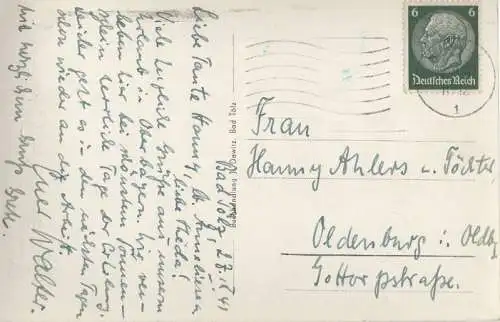 Bad Tölz, 27. 41
Liebe Tante Hanny, lb. Anneliese u.
liebe Theda!
Viele herzliche Grüße aus unserem
Urlaub in Oberbayern. Wir ver-
leben hier bei schönstem Sonnen-
schein herrliche Tage der Erholung.
Leider geht es in den nächsten Tagen
schon wieder an die Arbeit.
Mit herzlichem Gruß
Euer Walter.
Bad Tölz
6 6
Deutsches Reich
1
Frau
Hanny Ahlers u. Töchter
Oldenburg i. Oldbg.
Gottorpstraße.